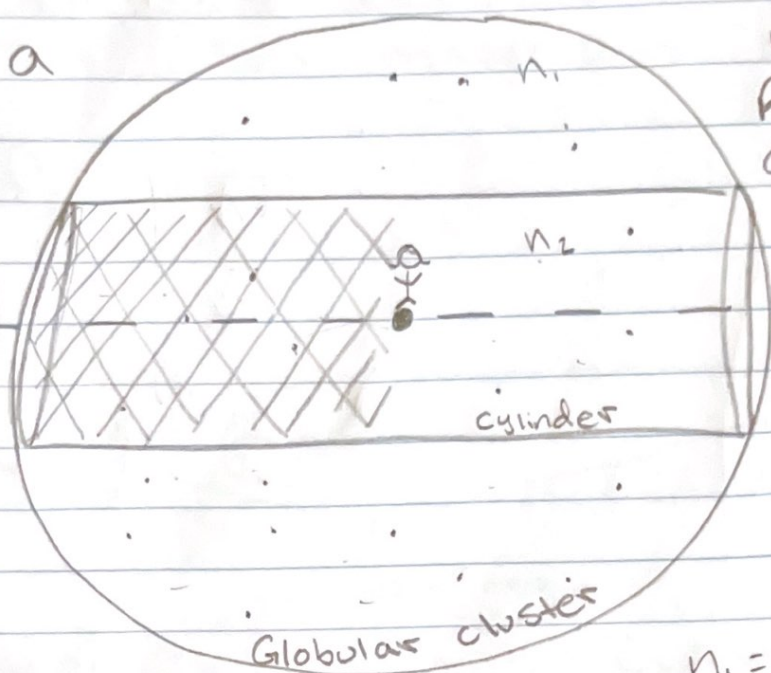 a
n₁
n₂
cylinder
Globular cluster
n₁ =